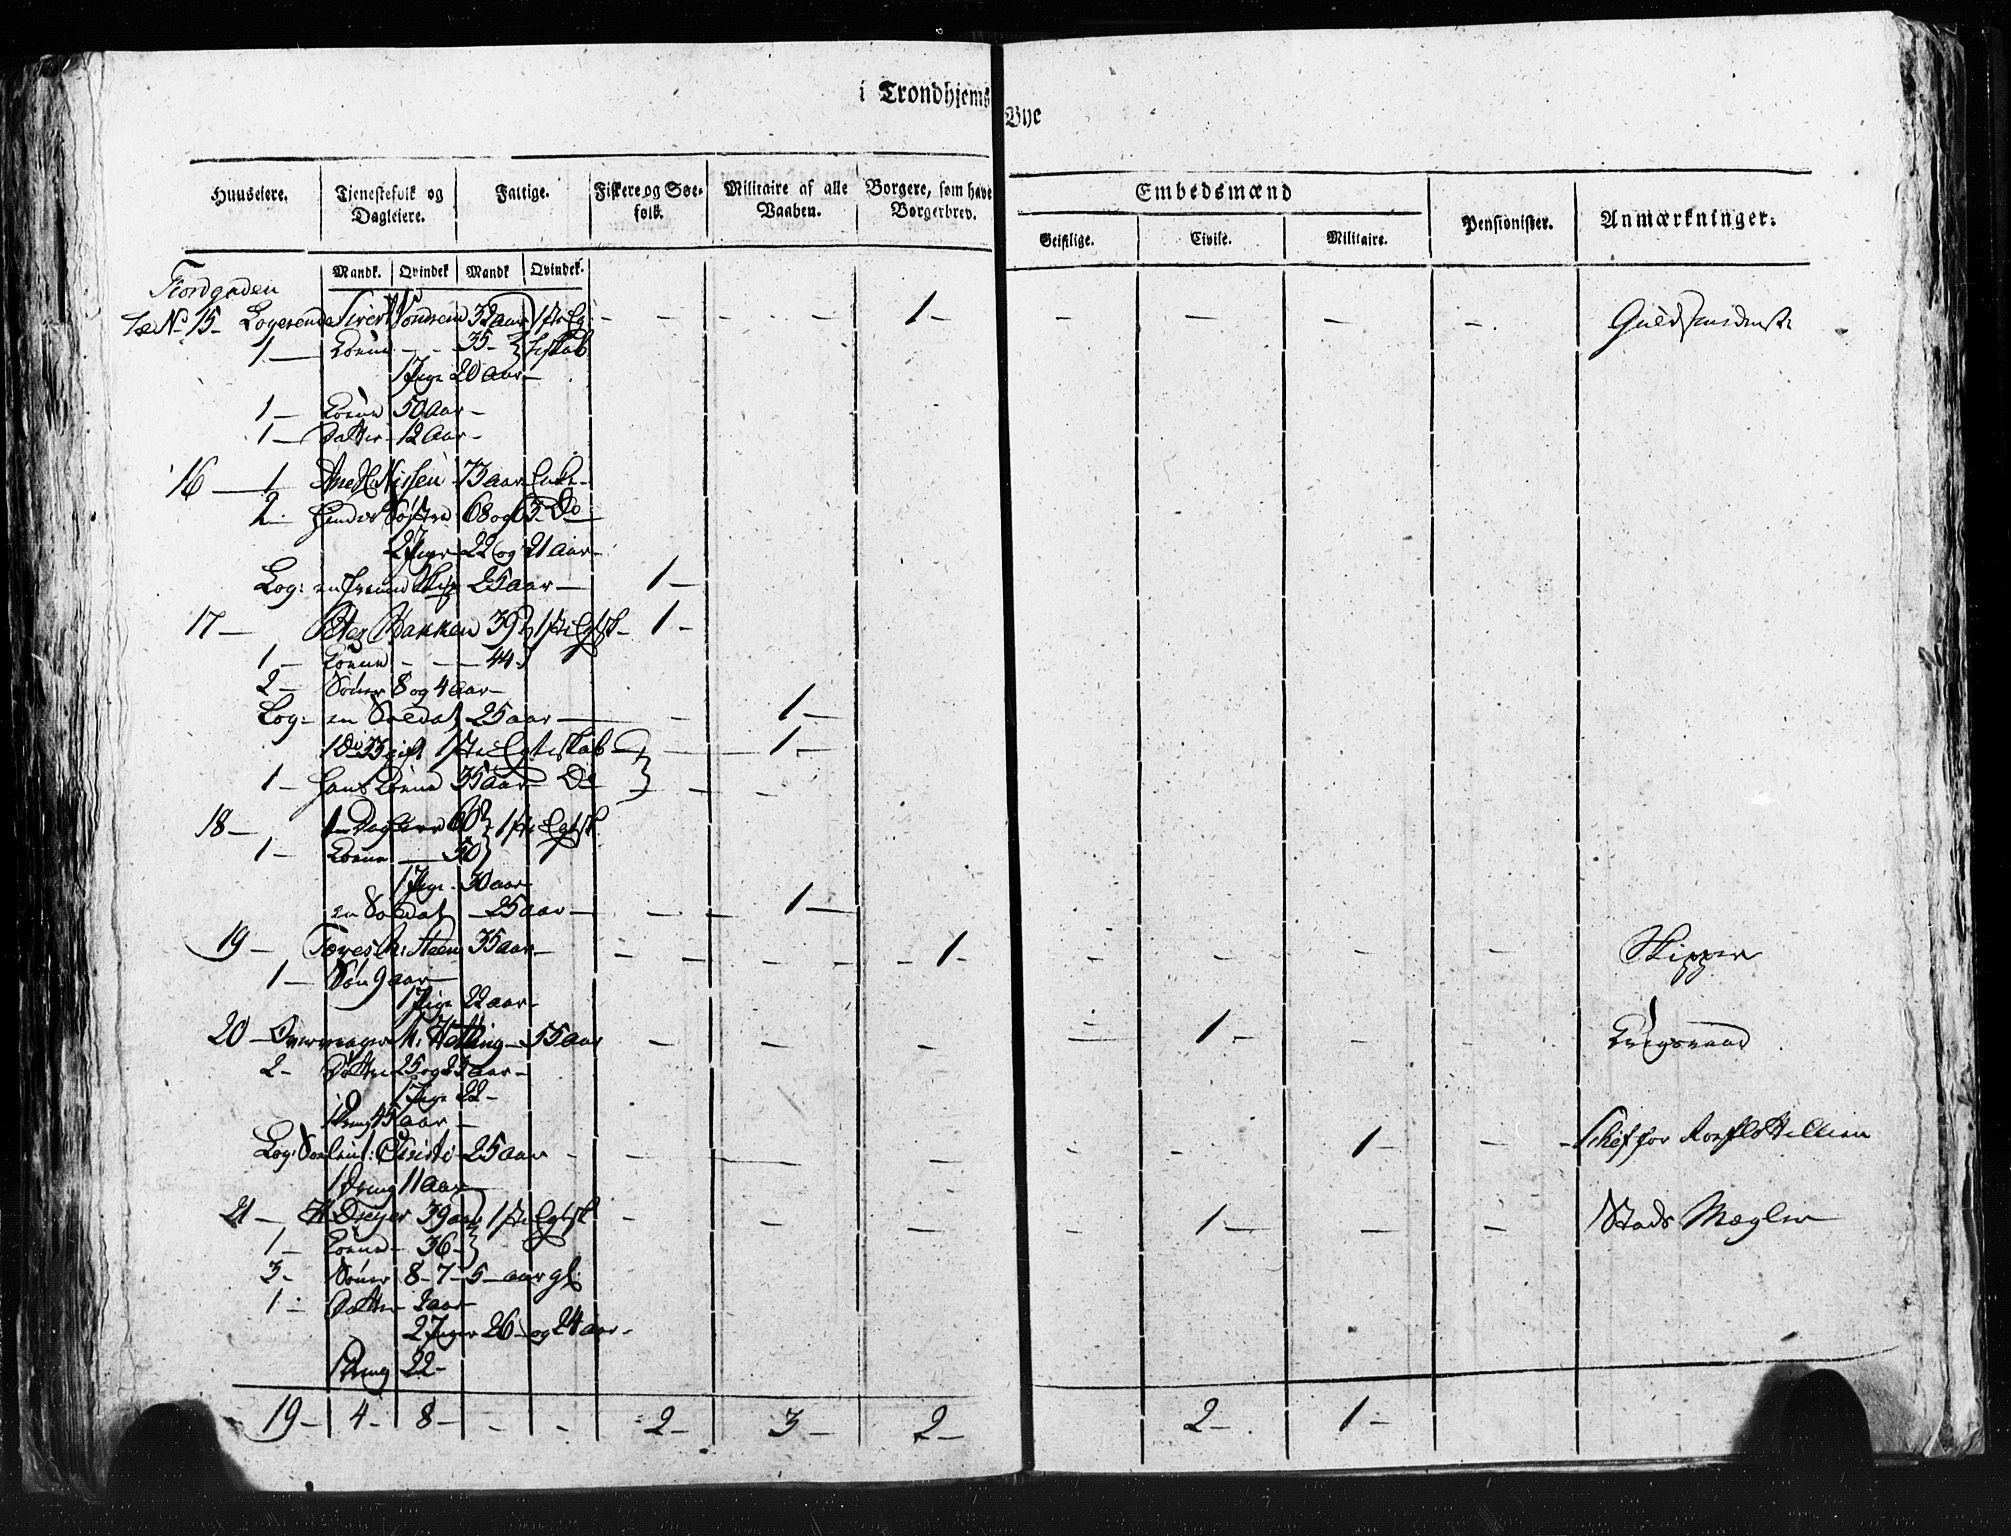 i Trondhjems Bye
Huuseiere. Tjenestefolk og Dagleiere. Fattige. Fiskere og Søe-folk. Militaire af alle Vaaben. Borgere, som have Borgerbrev. Embedsmænd Pensionister. Anmærkninger.
Geistlige. Civile. Militaire.
Mandk. Qvindek Mandk Qvindek.
Fiordgaden
No 15 - Logerende Sivert 32 aar 1ste Eg - - - - 1 - - - - - Guldsmedmst
1 - Kone - - 35 - teskab
1 Pige 20 aar -
1 - Kone 50 aar -
1 - Datter 12 aar -
16 - 1 Nissen 73 aar Enke -
2 - hendes Søstre 68 og 63 Do
2 Piger 22 og 21 aar -
Log: en fremd 25 aar - 1 -
17 - Peter Bakken 39 1ste Egtsk - 1 -
1 - Kone - - - 44 -
2 - Sønner 8 og 4 aar -
Log: en Soldat 25 aar - - 1 -
1 Do 33 gift 1ste Egteskab - - 1 -
1 - hans Kone 35 aar Do - - -
18 - 1 Dagleier 60 1ste Egtsk
1 - Kone - 50
1 Pige - 30 aar
en Soldat - 25 aar - - - 1 -
19 - Steen 35 aar - - - - - 1 - - - - - Skipper
1 - Søn 9 aar -
1 Pige 22 aar -
20 - Overvrager Hetting - 55 aar - - - - - 1 - - - Krigsraad
2 - Døttre 25 og 23 aar -
1 Pige 22 -
1 Dreng 45 aar -
Log: Soelieut: Christi - 25 aar - - - - - - 1 - - Schef for Roeflottellien
1 Dreng 11 aar -
21 - H Dreyer 39 aar 1ste Egtsk - - - - - 1 - - - Stads Mægler
1 - Kone - 36 -
3 - Sønner 8 - 7 - 5 - aar gl:
1 - Datter 2 aar -
2 Piger 26 - og 24 aar -
1 Dreng 22 -
19 - 4 - 8 - - - 2 - 3 - 2 - 2 - 1 -